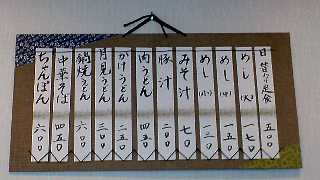 日替り定食 五〇〇
めし(大) 一七〇
めし(中) 一五〇
めし(小) 一三〇
みそ汁 七〇
豚汁 二〇〇
肉うどん 四五〇
かけうどん 二五〇
月見うどん 三〇〇
鍋焼うどん 六〇〇
中華そば 四五〇
ちゃんぽん 六〇〇